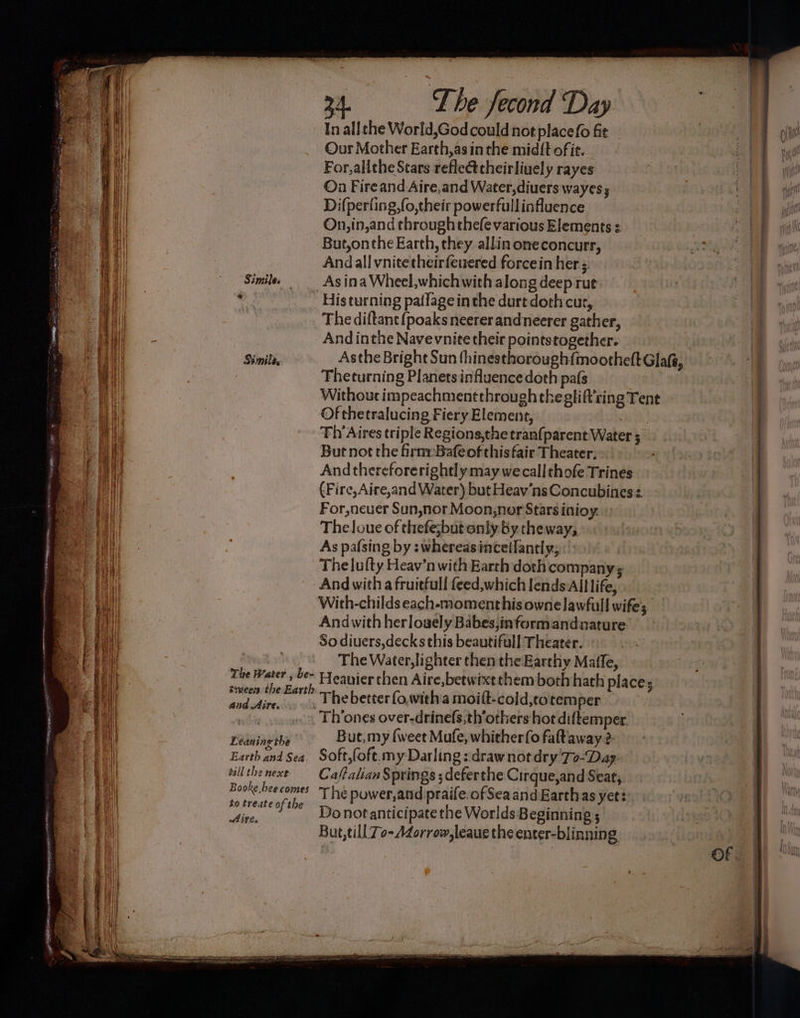 34 The ſecond Day
In all the World, God could not place ſo fit
Our Mother Earth, as in the midſt of it.
For, all the Stars reflect their liuely rayes
On Fire and Aire, and Water, diuers wayes;
Diſperſing, ſo, their powerfull influence
On, in, and through theſe various Elements:
But, on the Earth, they all in one concurr,
And all vnite their ſeuered force in her;
Simile.
As in a Wheel, which with a long deep rut
His turning paſſage in the durt doth cut,
The diſtant ſpoaks neerer and neerer gather,
And in the Nave vnite their points together.
Simile,
As the Bright Sun ſhines thorough ſmootheſt Glaſs,
The turning Planets influence doth paſs
Without impeachment through the gliſt'ring Tent
Of the tralucing Fiery Element,
Th' Aires triple Regions, the tranſparent Water;
But not the firm Baſe of this fair Theater.
And therefore rightly may we call thoſe Trines
(Fire, Aire, and Water) but Heav'ns Concubines:
For, neuer Sun, nor Moon, nor Stars inioy
The loue of theſe; but only by the way,
As paſsing by: whereas inceſſantly,
The luſty Heav'n with Earth doth company;
And with a fruitfull ſeed, which lends All life,
With-childs each-moment his owne lawfull wife;
And with her louely Babes, in form and nature
So diuers, decks this beautifull Theater.
The Water, lighter then the Earthy Maſſe,
The Water, be-
tween the Earth
and Aire.
Heauier then Aire, betwixt them both hath place;
The better ſo, with a moiſt-cold, to temper
Th'ones over-drineſs, th'others hot diſtemper.
Leauing the
Earth and Sea
till the next
Booke, hee comes
to treate of the
Aire.
But, my ſweet Muſe, whither ſo faſt away?
Soft, ſoft, my Darling: draw not dry To-Day
Caſtalian Springs; defer the Cirque, and Seat,
The power, and praiſe of Sea and Earth as yet:
Do not anticipate the Worlds Beginning;
But, till To-Morrow, leaue the enter-blinning
Of